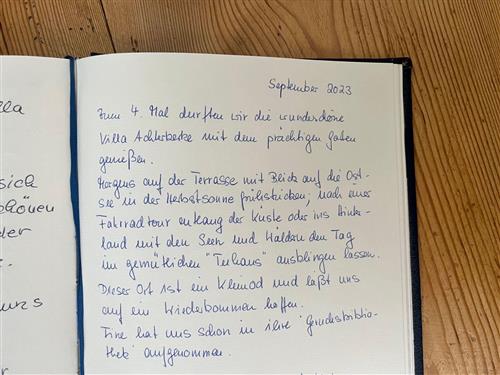 lla
sich
chönen
der
uns
September 2023
Zum 4. Mal durften wir die wunderschöne
Villa Achterbecke mit dem prächtigen Garten
genießen.
Morgens auf der Terrasse mit Blick auf die Ost-
see in der Herbstsonne frühstücken; nach einer
Fahrradtour entlang der Küste oder ins Hinter-
land mit den Seen und Wäldern den Tag
im gemütlichen "Teehaus" ausklingen lassen.
Dieser Ort ist ein Kleinod und läßt uns
auf ein Wiederkommen hoffen.
hat uns schon in ihre "Geruchsbiblio-
thek" aufgenommen.